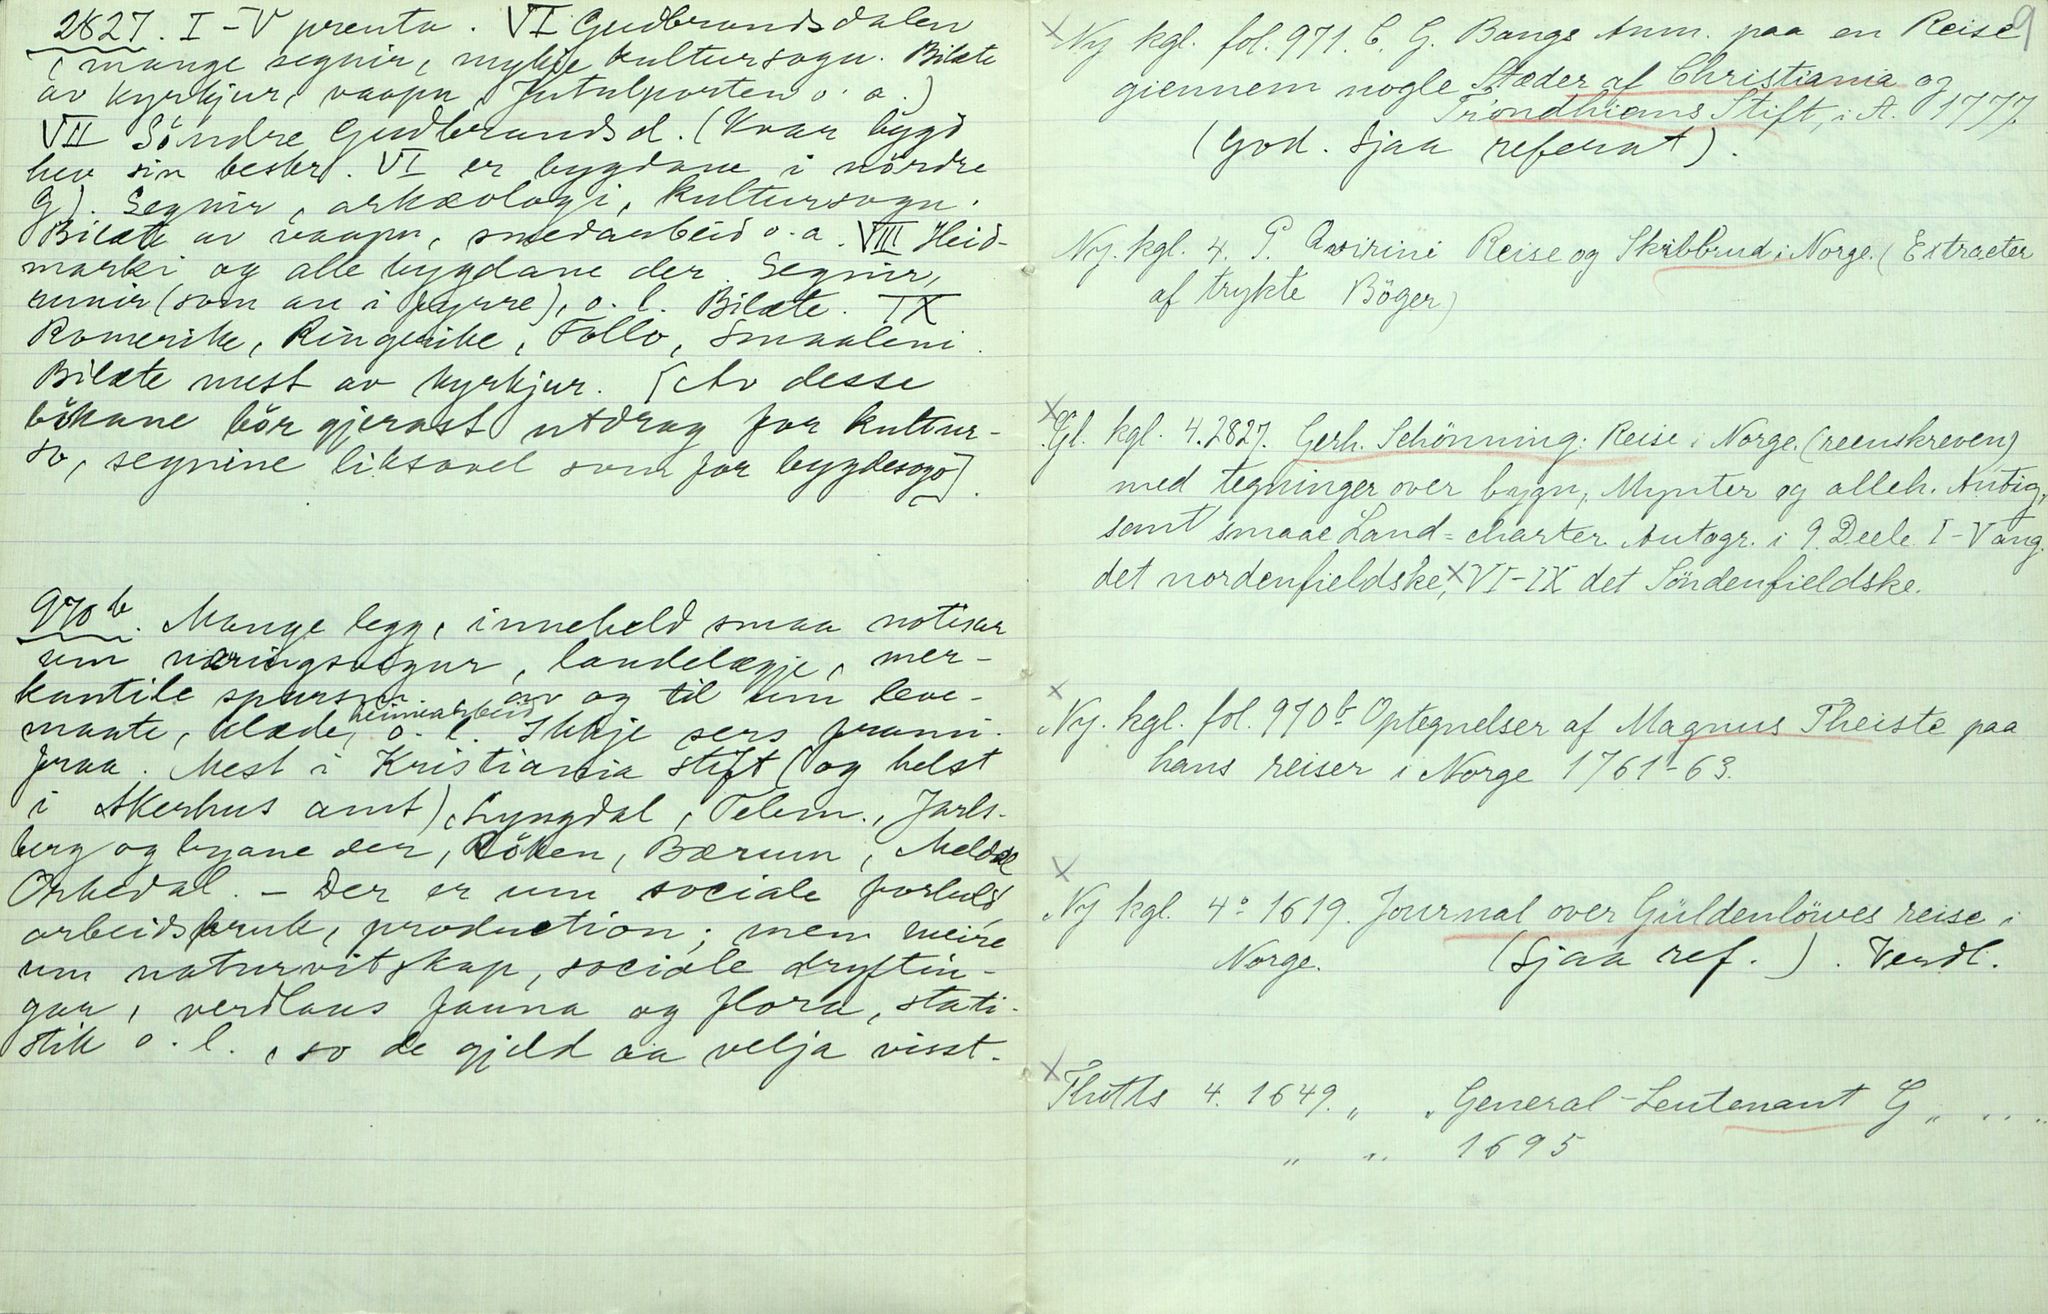 2827. I-V prenta. VI Gudbrandsdalen
(mange segnir, mykje kultursogu. Bilæte
av kyrkjur, vaapn, Jutulporten o. a.)
VII Söndre Gudbrandsd. (Kvar bygd
hev sin beskr. VI er bygdane i nördre
G). Segnir, arkæologi, kultursogu.
Bilæte av vaapn, smedarbeid o. a. VIII Heid-
marki og alle bygdane der. Segnir,
runir (som an i fyrre), o. l. Bilæte. IX
Romerike, Ringerike, Follo, Smaaleni.
Bilæte mest av kyrkjur. [Av desse
bökane bör gjerast utdrag for kultur-
so, segnine liksovel som for bygdesogo].
970 b. Mange legg, inneheld smaa notisar
um næringsvegur, landelægje, mer-
kantile spursm. av og til um leve-
maate, klæde, heimearbeid o. l. Ikkje sers frami-
fraa. Mest i Kristiania stift (og helst
i Akerhus amt), Lyngdal, Telem., Jarls-
berg og byane der, Röken, Bærum, Meldal
Orkedal. - Der er um sociale forhold,
arbeidsbruk, production; men meire
um naturvitskap, sociale dryftin-
gar, verdlaus fauna og flora, stati-
stik o. l., so de gjeld aa velja visst.
9
x Ny kgl. fol. 971. C. G. Bangs Anm. paa en Reise
giennem nogle Stæder af Christiania og
Trondhiems Stift, i A. 1777.
(God. Sjaa referat).
Ny. kgl. 4. P. Qvirini Reise og Skibbrud i Norge. (Extracter
af trykte Böger)
x Gl. kgl. 4. 2827. Gerh. Schönning: Reise i Norge. (reenskreven)
med tegninger over bygn, Mynter og alleh. Antiq,
samt smaae Land=charter. Autogr. i 9 Deele I-V ang.
det nordenfieldske, x VI-IX det Söndenfieldske.
x Ny. kgl. fol. 970 b Optegnelser af Magnus Theiste paa
hans reiser i Norge 1761-63.
x Ny kgl. 4º 1619. Journal over Güldenlöwes reise i
Norge. (Sjaa ref.). Verdl.
x Thotts 4. 1649. „ „ General-Leutenant G „ „ „
„ „ 1695